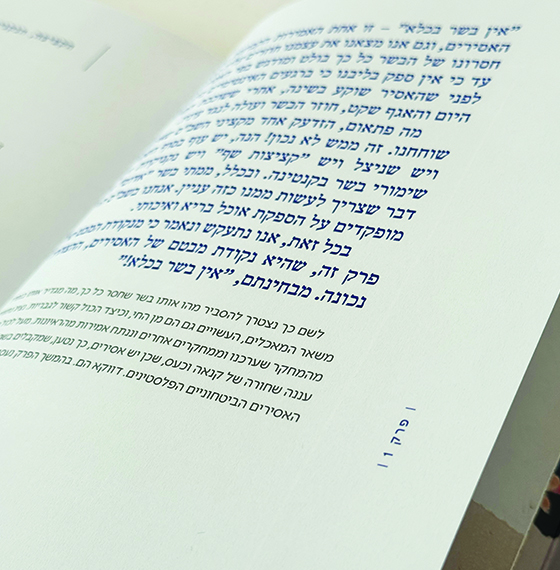 "אין בשר בכלא" – זו אחת האמירות
האסירים, וגם אנו מצאנו את עצמנו
חסרונו של הבשר כל כך בולט ומודגש
עד כי אין ספק בליבנו כי ברגעים
לפני שהאסיר שוקע בשינה, אחרי
היום והאגף שקט, חוזר הבשר ועולה
מה פתאום, הזדעק אחד מקציני
שוחחנו. זה ממש לא נכון! הנה, יש עוף
ויש שניצל ויש "קציצות שף" ויש
שימורי בשר בקנטינה. ובכלל, ממתי בשר
דבר שצריך לעשות ממנו כזה עניין. אנחנו
מופקדים על הספקת אוכל בריא ואיכותי.
בכל זאת, אנו נתעקש ונאמר כי מנקודת
פרק זה, שהיא נקודת מבטם של האסירים,
נכונה. מבחינתם, "אין בשר בכלא!"
לשם כך נצטרך להסביר מהו אותו בשר שחסר כל כך, מה מגדיר אותו
משאר המאכלים, העשויים גם הם מן החי, וכיצד הכול קשור לגבריות.
מהמחקר שערכנו וממחקרים אחרים וננתח אמירות מהראיונות. מעל
עננה שחורה של קנאה וכעס, שכן יש אסירים, כך נטען, שמקבלים
האסירים הביטחוניים הפלסטינים. דווקא הם. בהמשך הפרק
| פרק 1 |